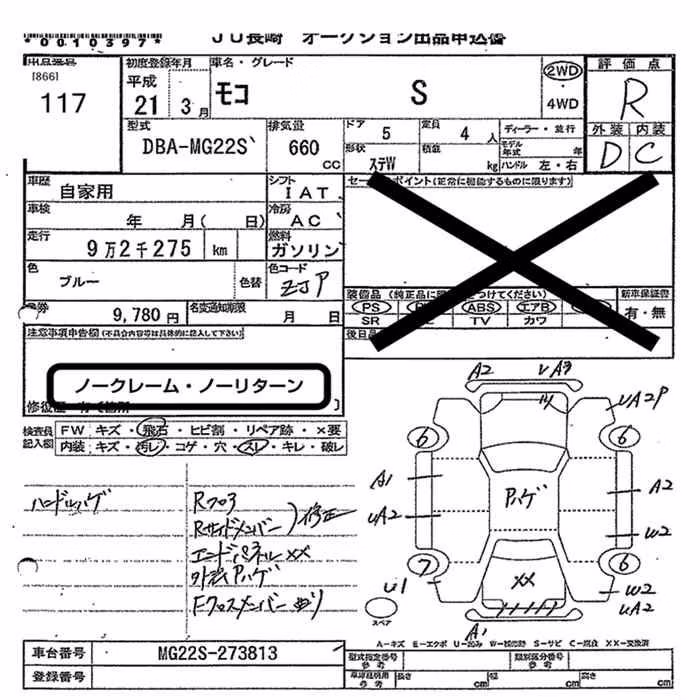 *0010397* JU長崎 オークション出品申込書
出品番号 初度登録年月 車名・グレード 評価点
[866] 117
平成 21 3月 モコ S 2WD ・ 4WD R
外装 内装 D C
型式 DBA-MG22S 排気量 660 CC
ドア 5 定員 4人 ディーラー・並行
形状 ステW 積載 kg モデル年式 年 ハンドル 左・右
車歴 自家用 シフト IAT
セールスポイント(正常に機能するものに限ります)
車検 年 月( 日) 冷房 AC
走行 9万2千275 km 燃料 ガソリン
色 ブルー 色替 色コード ZJP
装備品 新車保証書
PS ABS エアB 有・無
SR TV カワ
9,780円 名変通知期限 月 日
後日品
注意事項申告欄(不具合内容等は具体的に記入して下さい)
ノークレーム・ノーリターン
修復歴
検査員記入欄 FW キズ・飛石・ヒビ割・リペア跡・×要
内装 キズ・汚レ・コゲ・穴・スレ・キレ・破レ
ハンドルハゲ
R フロア
Rサイドメンバー 修正
エンドパネル××
ルーフPハゲ
Fクロスメンバー曲り
A2 UA3
UA2P
6 6
A1 Pハゲ A2
UA2 W2
7 6
U1 ×× W2
UA2
スペア A1
A-キズ E-エクボ U-凹み W-補修跡 S-サビ C-腐食 XX-交換済
車台番号 MG22S-273813
登録番号
型式指定番号 参考 類別区分番号 参考
車庫証明用 参考 長さ cm 幅 cm 高さ cm